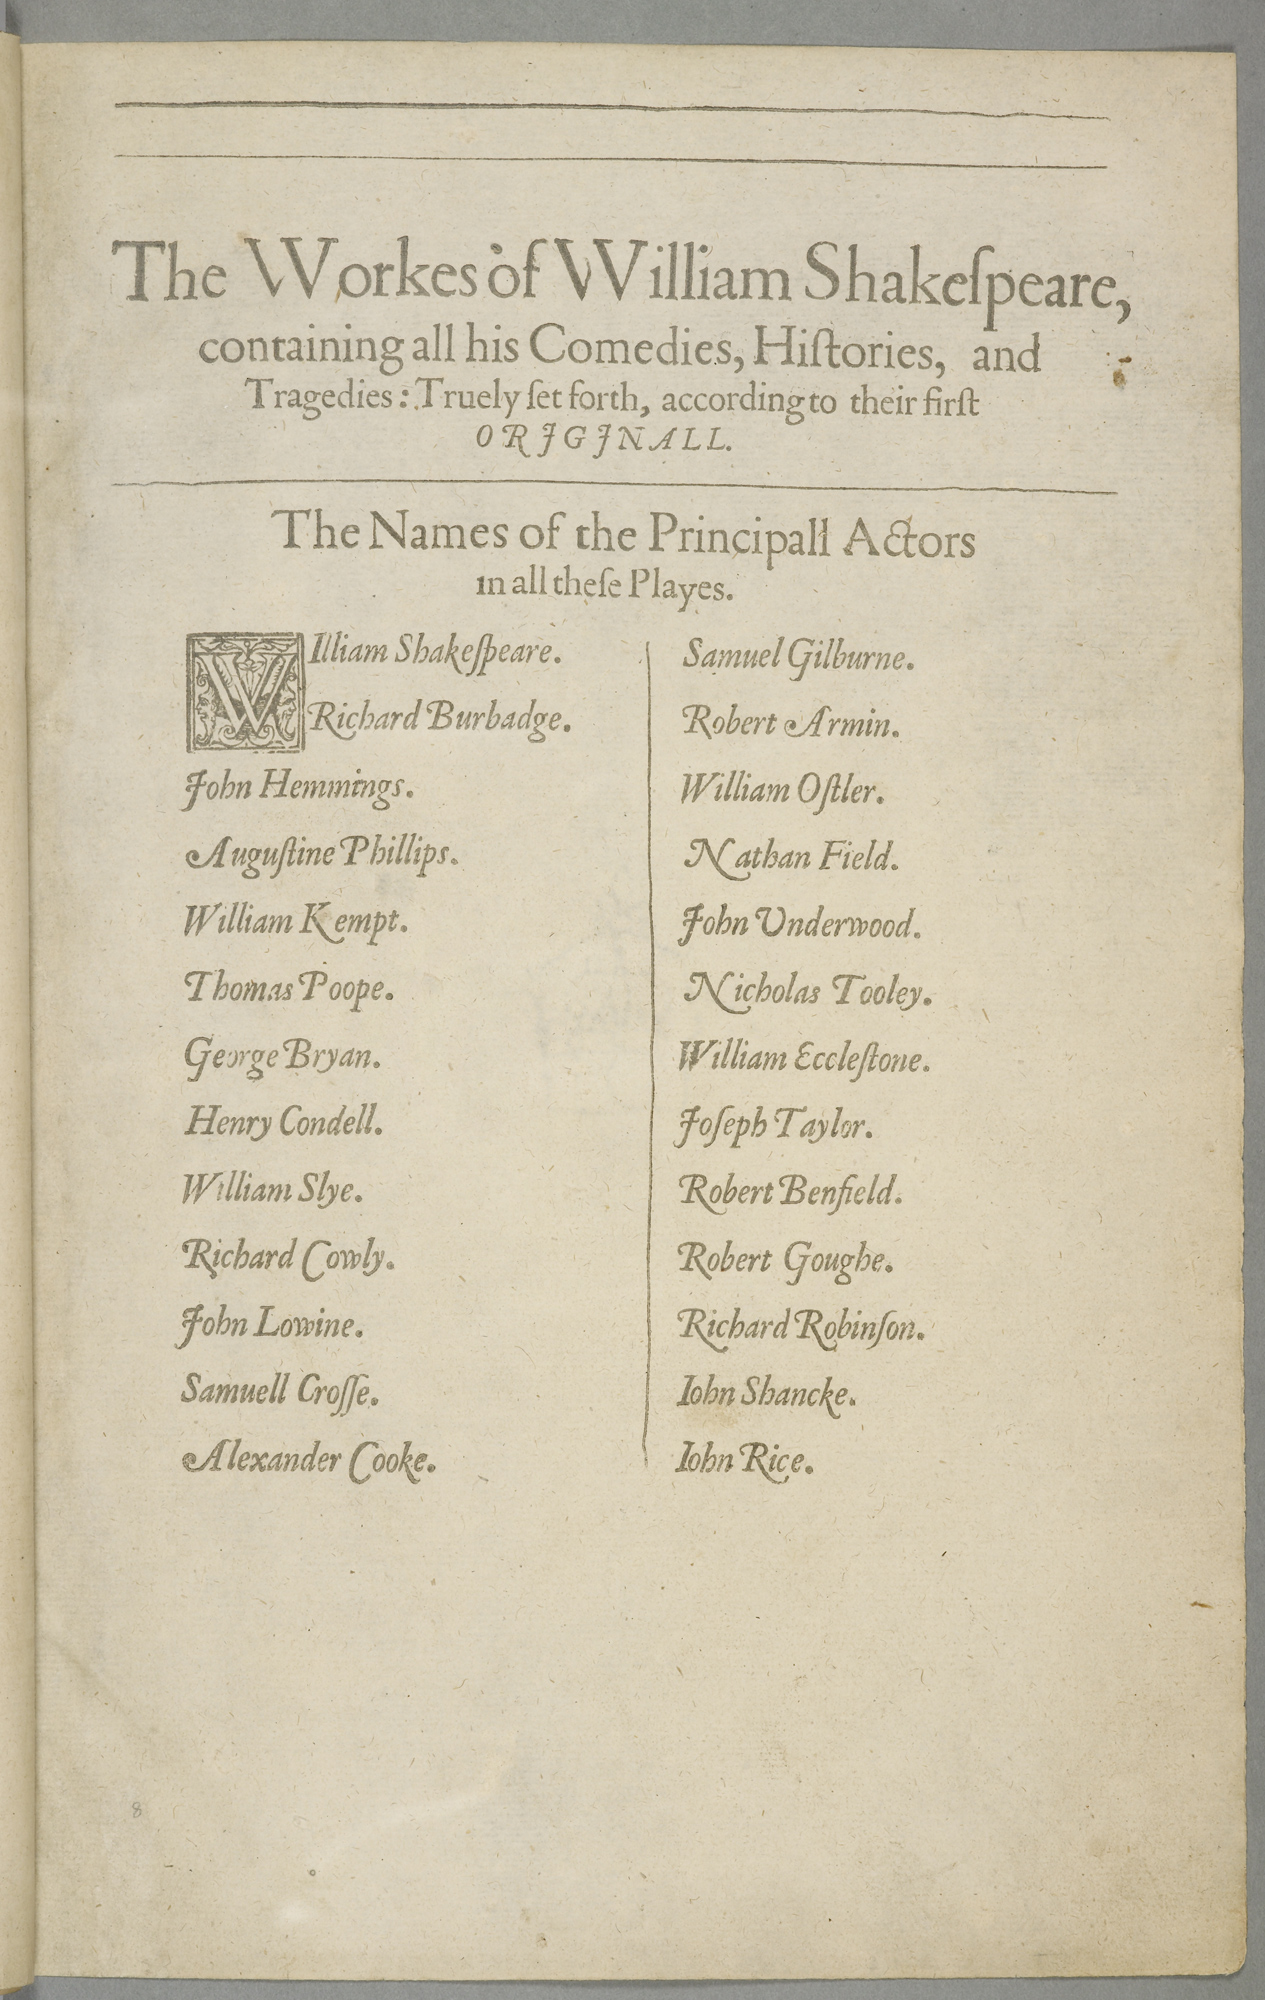 The Workes of William Shakeſpeare,
containing all his Comedies, Hiſtories, and
Tragedies: Truely ſet forth, according to their firſt
ORJGJNALL.
The Names of the Principall Actors
in all theſe Playes.
WIlliam Shakeſpeare.
Richard Burbadge.
John Hemmings.
Auguſtine Phillips.
William Kempt.
Thomas Poope.
George Bryan.
Henry Condell.
William Slye.
Richard Cowly.
John Lowine.
Samuell Croſſe.
Alexander Cooke.
Samuel Gilburne.
Robert Armin.
William Oſtler.
Nathan Field.
John Underwood.
Nicholas Tooley.
William Eccleſtone.
Joſeph Taylor.
Robert Benfield.
Robert Goughe.
Richard Robinſon.
Iohn Shancke.
Iohn Rice.
8